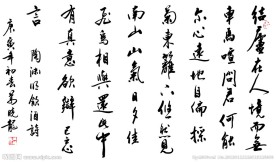 結廬在人境而無
車馬喧問君何能
尔心遠地自偏採
菊東籬下悠然見
南山山氣日夕佳
飛鳥相與還此中
有真意欲辯已忘
言 陶淵明飲酒詩
庚寅年初